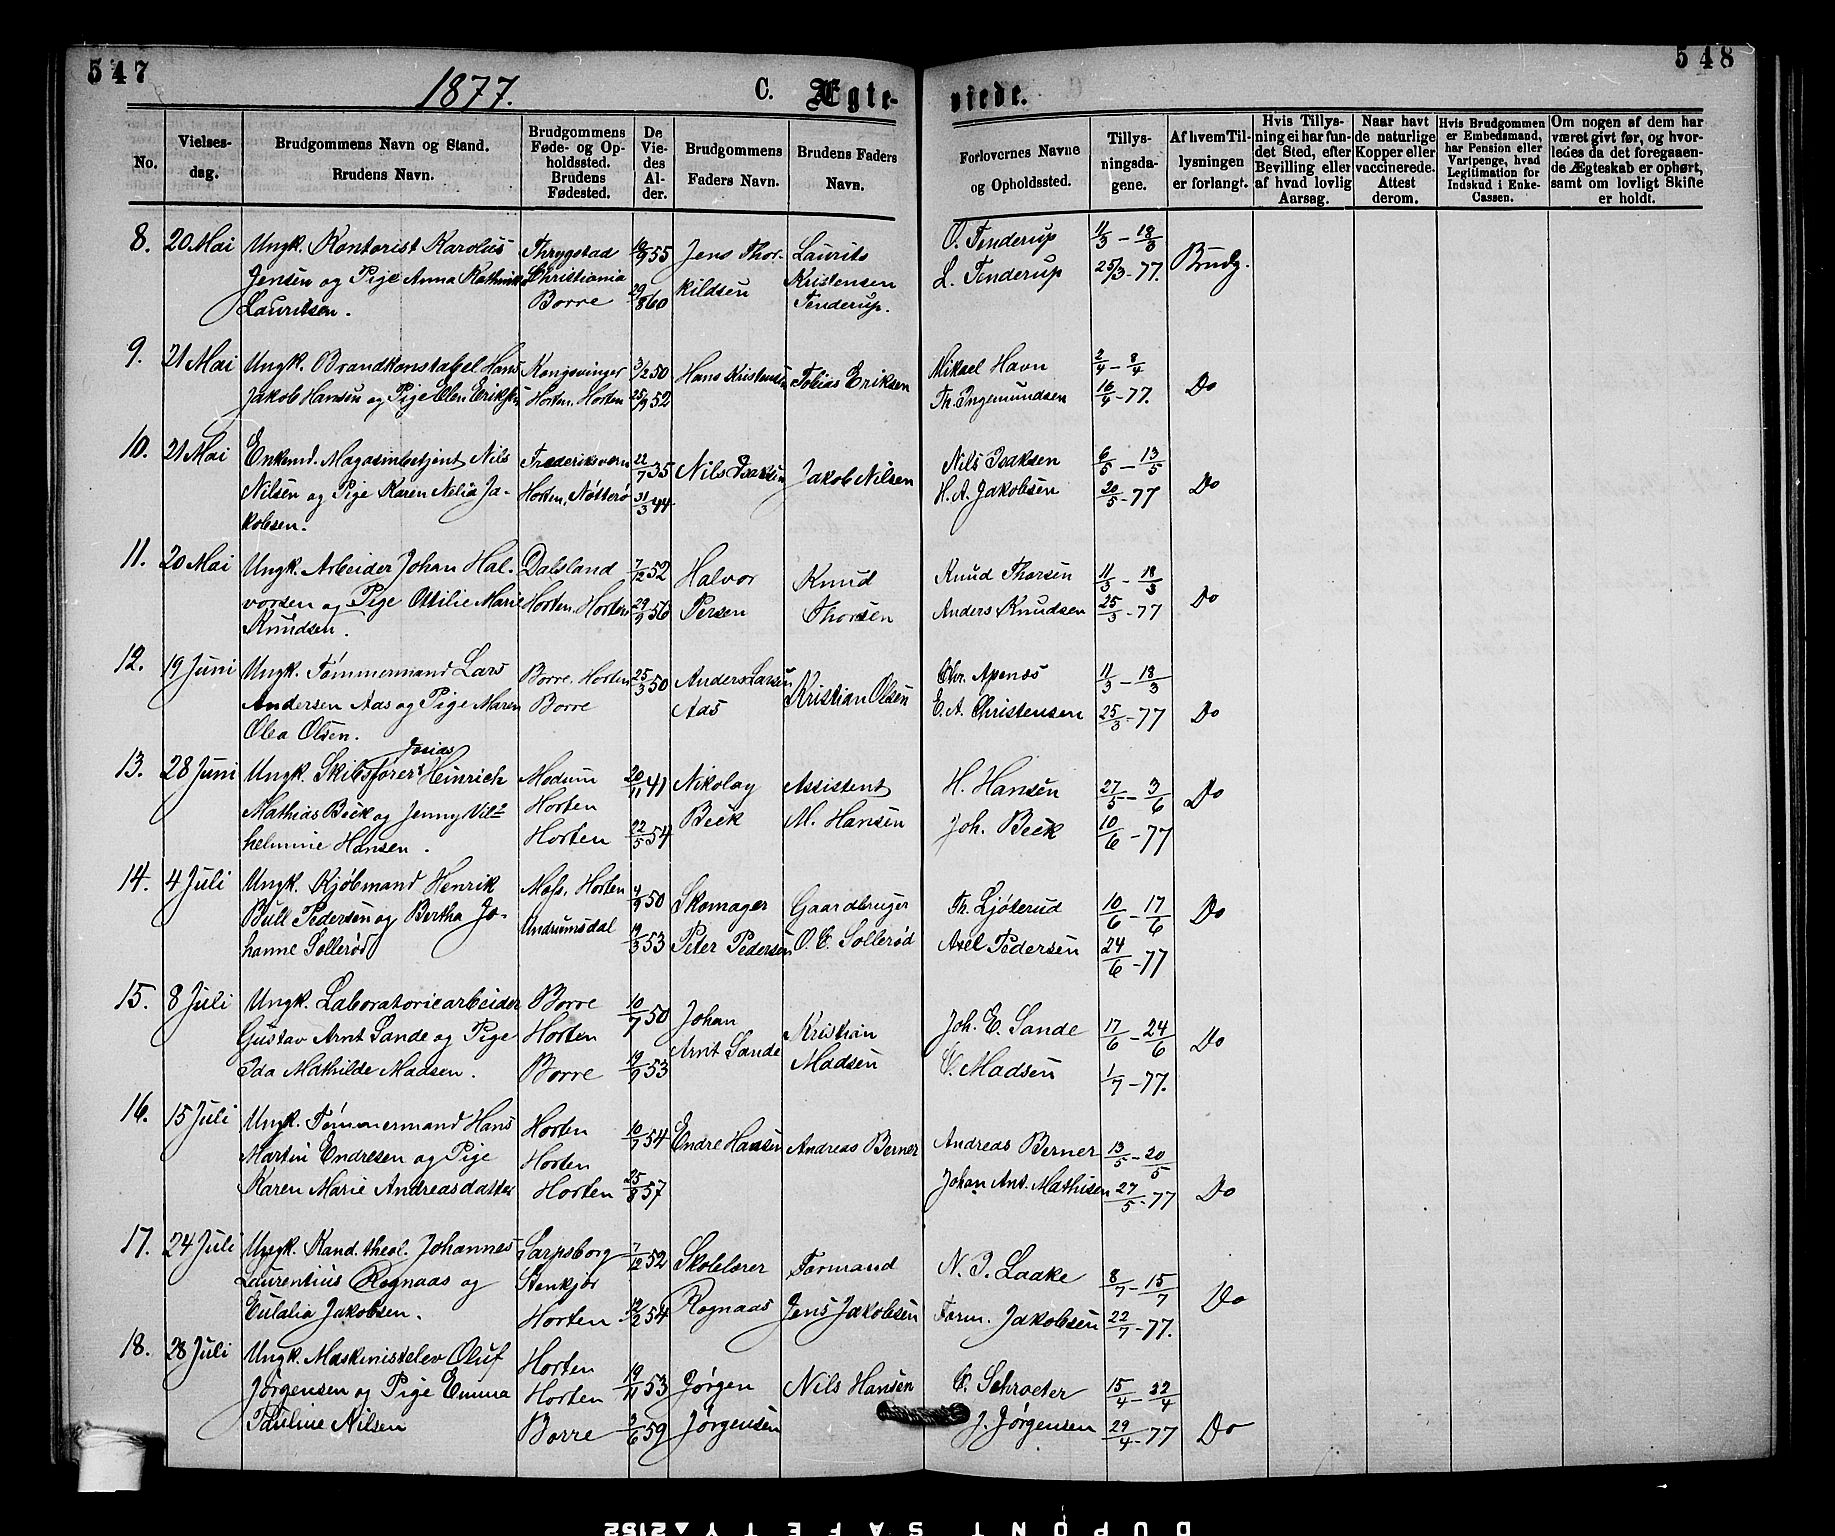 547
1877.
C. Ægte-
viede.
548
No.
Vielses-
dag.
Brudgommens Navn og Stand.
Brudens Navn.
Brudgommens
Føde- og Op-
holdssted.
Brudens
Fødested.
De
Vie-
des
Al-
der.
Brudgommens
Faders Navn.
Brudens Faders
Navn.
Forlovernes Navne
og Opholdssted.
Tillys-
ningsda-
gene.
Af hvem Til-
lysningen
er forlangt.
Hvis Tillys-
ning ei har fun-
det Sted, efter
Bevilling eller
af hvad lovlig
Aarsag.
Naar havt
de naturlige
Kopper eller
vaccinerede.
Attest
derom.
Hvis Brudgommen
er Embedsmand,
har Pension eller
Vartpenge, hvad
Legitimation for
Indskud i Enke-
Cassen.
Om nogen af dem har
været givt før, og hvor-
ledes da det foregaaen-
de Ægteskab er ophørt,
samt om lovligt Skifte
er holdt.
8. 20 Mai Ungk. Kontorist Karolus Thrygstad 19/9 55 Jens Thor- Laurits O. Tenderup 11/3 - 18/3
Jensen og Pige Anna Kathinka Christiania kildsen Kristensen L. Tenderup 25/3 - 77. Brudg.
Lauritsen. Borre 29/8 60 Tenderup.
9. 21 Mai Ungk. Brandkonstabel Hans Kongsvinger 3/12 50 Hans Kristensen Tobias Eriksen Mikael Havn 2/4 - 8/4
Jakob Hansen og Pige Elen Eriksen Horten, Horten 25/9 52 Th. Ingemundsen 16/4 - 77. Do
10. 21 Mai Enkemd. Magasinbetjent Nils Frederiksværn 22/7 35 Nils Isaksen Jakob Nilsen Nils Isaksen 6/5 - 13/5
Nilsen og Pige Karen Nilia Ja- Horten, Nötterö 31/3 44 H. A. Jakobsen 20/5 - 77 Do
kobsen.
11. 20 Mai Ungk. Arbeider Johan Hal- Dalsland 7/12 52 Halvor Knud Knud Thorsen 11/3 - 18/3
vorsen og Pige Ottilie Marie Horten, Horten 29/9 56 Persen Thorsen Anders Knudsen 25/3 - 77 Do
Knudsen.
12. 19 Juni Ungk. Tømmermand Lars Borre, Horten 25/3 50 Anders Larsen Kristian Olsen Chr. Apenæs 11/3 - 18/3
Andersen Aas og Pige Maren Borre Aas E. A. Christensen 25/3 - 77 Do
Olea Olsen.
Josias
13. 28 Juni Ungk. Skibsfører Heinrich Modum 20/11 41 Nikolay Assistent H. Hansen 27/5 - 3/6 Do
Mathias Beck og Jenny Vil- Horten Beck M. Hansen Joh. Beck 10/6 - 77
helmine Hansen. Horten 22/5 54
14. 4 Juli Ungk. Kjøbmand Henrik Moss, Horten 4/9 50 Skomager Gaardbruger Th. Ljøterud 10/6 - 17/6 Do
Bull Pedersen og Bertha Jo- Undrumsdal 19/3 53 Peter Pedersen O. C. Sollerød Axel Pedersen 24/6 - 77
hanne Sollerød
15. 8 Juli Ungk. Laboratoriearbeider Borre 10/7 50 Johan Kristian Joh. E. Sande 17/6 - 24/6 Do
Gustav Arnt Sande og Pige Horten Arnt Sande Madsen C. Madsen 1/7 - 77.
Ida Mathilde Madsen. Borre 19/9 53
16. 15 Juli Ungk. Tømmermand Hans Horten 10/7 54 Endre Hansen Andreas Berner Andreas Berner 13/5 - 20/5
Martin Endresen og Pige Horten Johan Ant. Mathisen 27/5 - 77 Do
Karen Marie Andreasdatter Horten 25/8 57
17. 24 Juli Ungk. Kand. theol. Johannes Sarpsborg 7/12 52 Skolelærer Formand N. J. Laake 8/7 - 15/7
Laurentius Rognaas og Stenkjør Rognaas Jens Jakobsen Form. Jakobsen 22/7 - 77. Do
Eulalia Jakobsen. Horten 12/2 54
18. 28 Juli Ungk. Maskinistelev Oluf Horten 19/11 53 Jørgen Nils Hansen C. Schroeter 15/4 - 22/4
Jørgensen og Pige Emma Horten Jørgensen J. Jørgensen 29/4 - 77 Do
Pauline Nilsen Borre 2/6 59
DUPONT SAFETY ▲ 2152